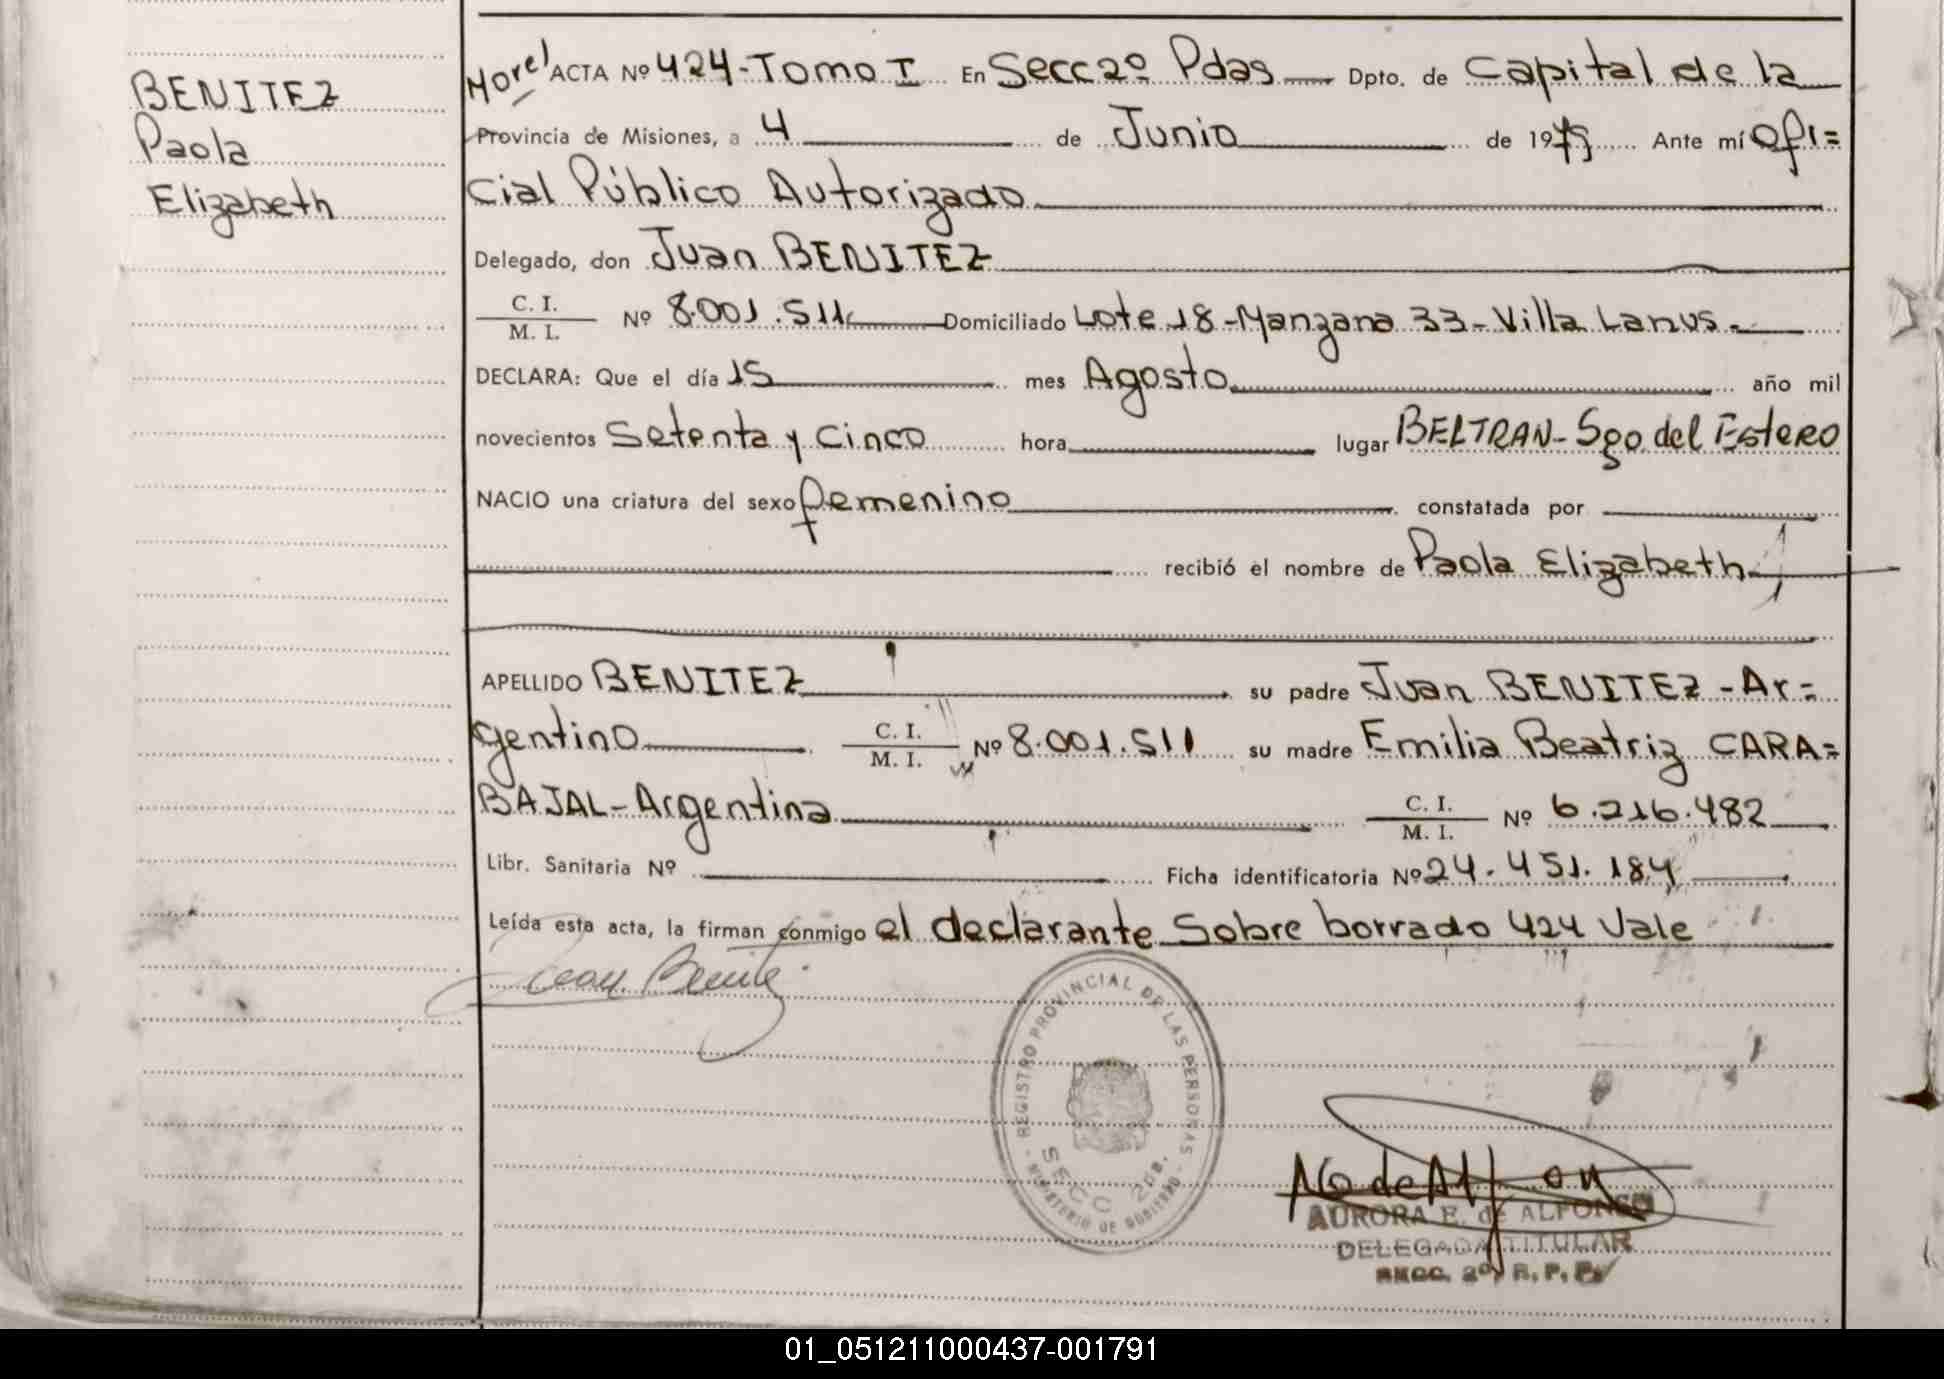 BENITEZ
Paola
Elizabeth
Morel ACTA Nº 424-Tomo I En Secc 2º Pdas Dpto. de Capital de la
Provincia de Misiones, a 4 de Junio de 19 Ante mí Ofi=
cial Público Autorizado
Delegado, don Juan BENITEZ
C. I.
M. I. Nº 8.001.511 Domiciliado Lote 18-Manzana 33-Villa Lanus.-
DECLARA: Que el día 15 mes Agosto año mil
novecientos Setenta y Cinco hora lugar BELTRAN-Sgo.del Estero
NACIO una criatura del sexo femenino constatada por
recibió el nombre de Paola Elizabeth
APELLIDO BENITEZ su padre Juan BENITEZ -Ar=
gentino C. I.
M. I. Nº 8.001.511 su madre Emilia Beatriz CARA=
BAJAL-Argentina C. I.
M. I. Nº 6.216.482
Libr. Sanitaria Nº Ficha identificatoria Nº 24.451.184
Leída esta acta, la firman conmigo el declarante Sobre borrado 424 Vale
Juan Benitez
REGISTRO PROVINCIAL DE LAS PERSONAS
SECC 2da.
MINISTERIO DE GOBIERNO
AURORA E. de ALFONSO
DELEGADA TITULAR
SECC. 2º, R. P. P.
01_051211000437-001791